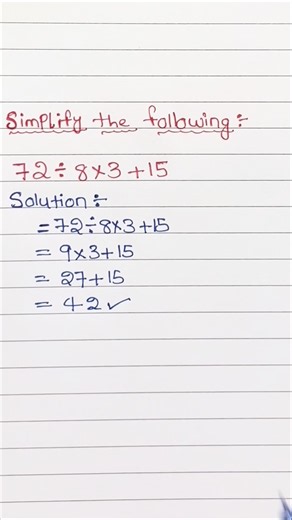 Simplify the following:-
72÷8×3+15
Solution:-
=72÷8×3+15
= 9×3+15
= 27+15
= 42✓